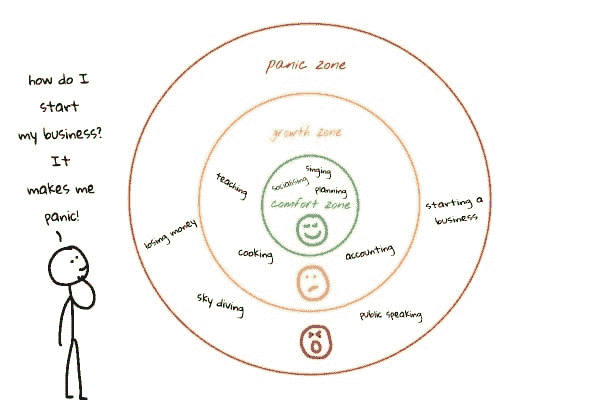 how do I
start
my business?
It
makes me
panic!
panic zone
growth zone
singing
socialising
planning
comfort zone
teaching
starting a
business
losing money
cooking
accounting
sky diving
public speaking